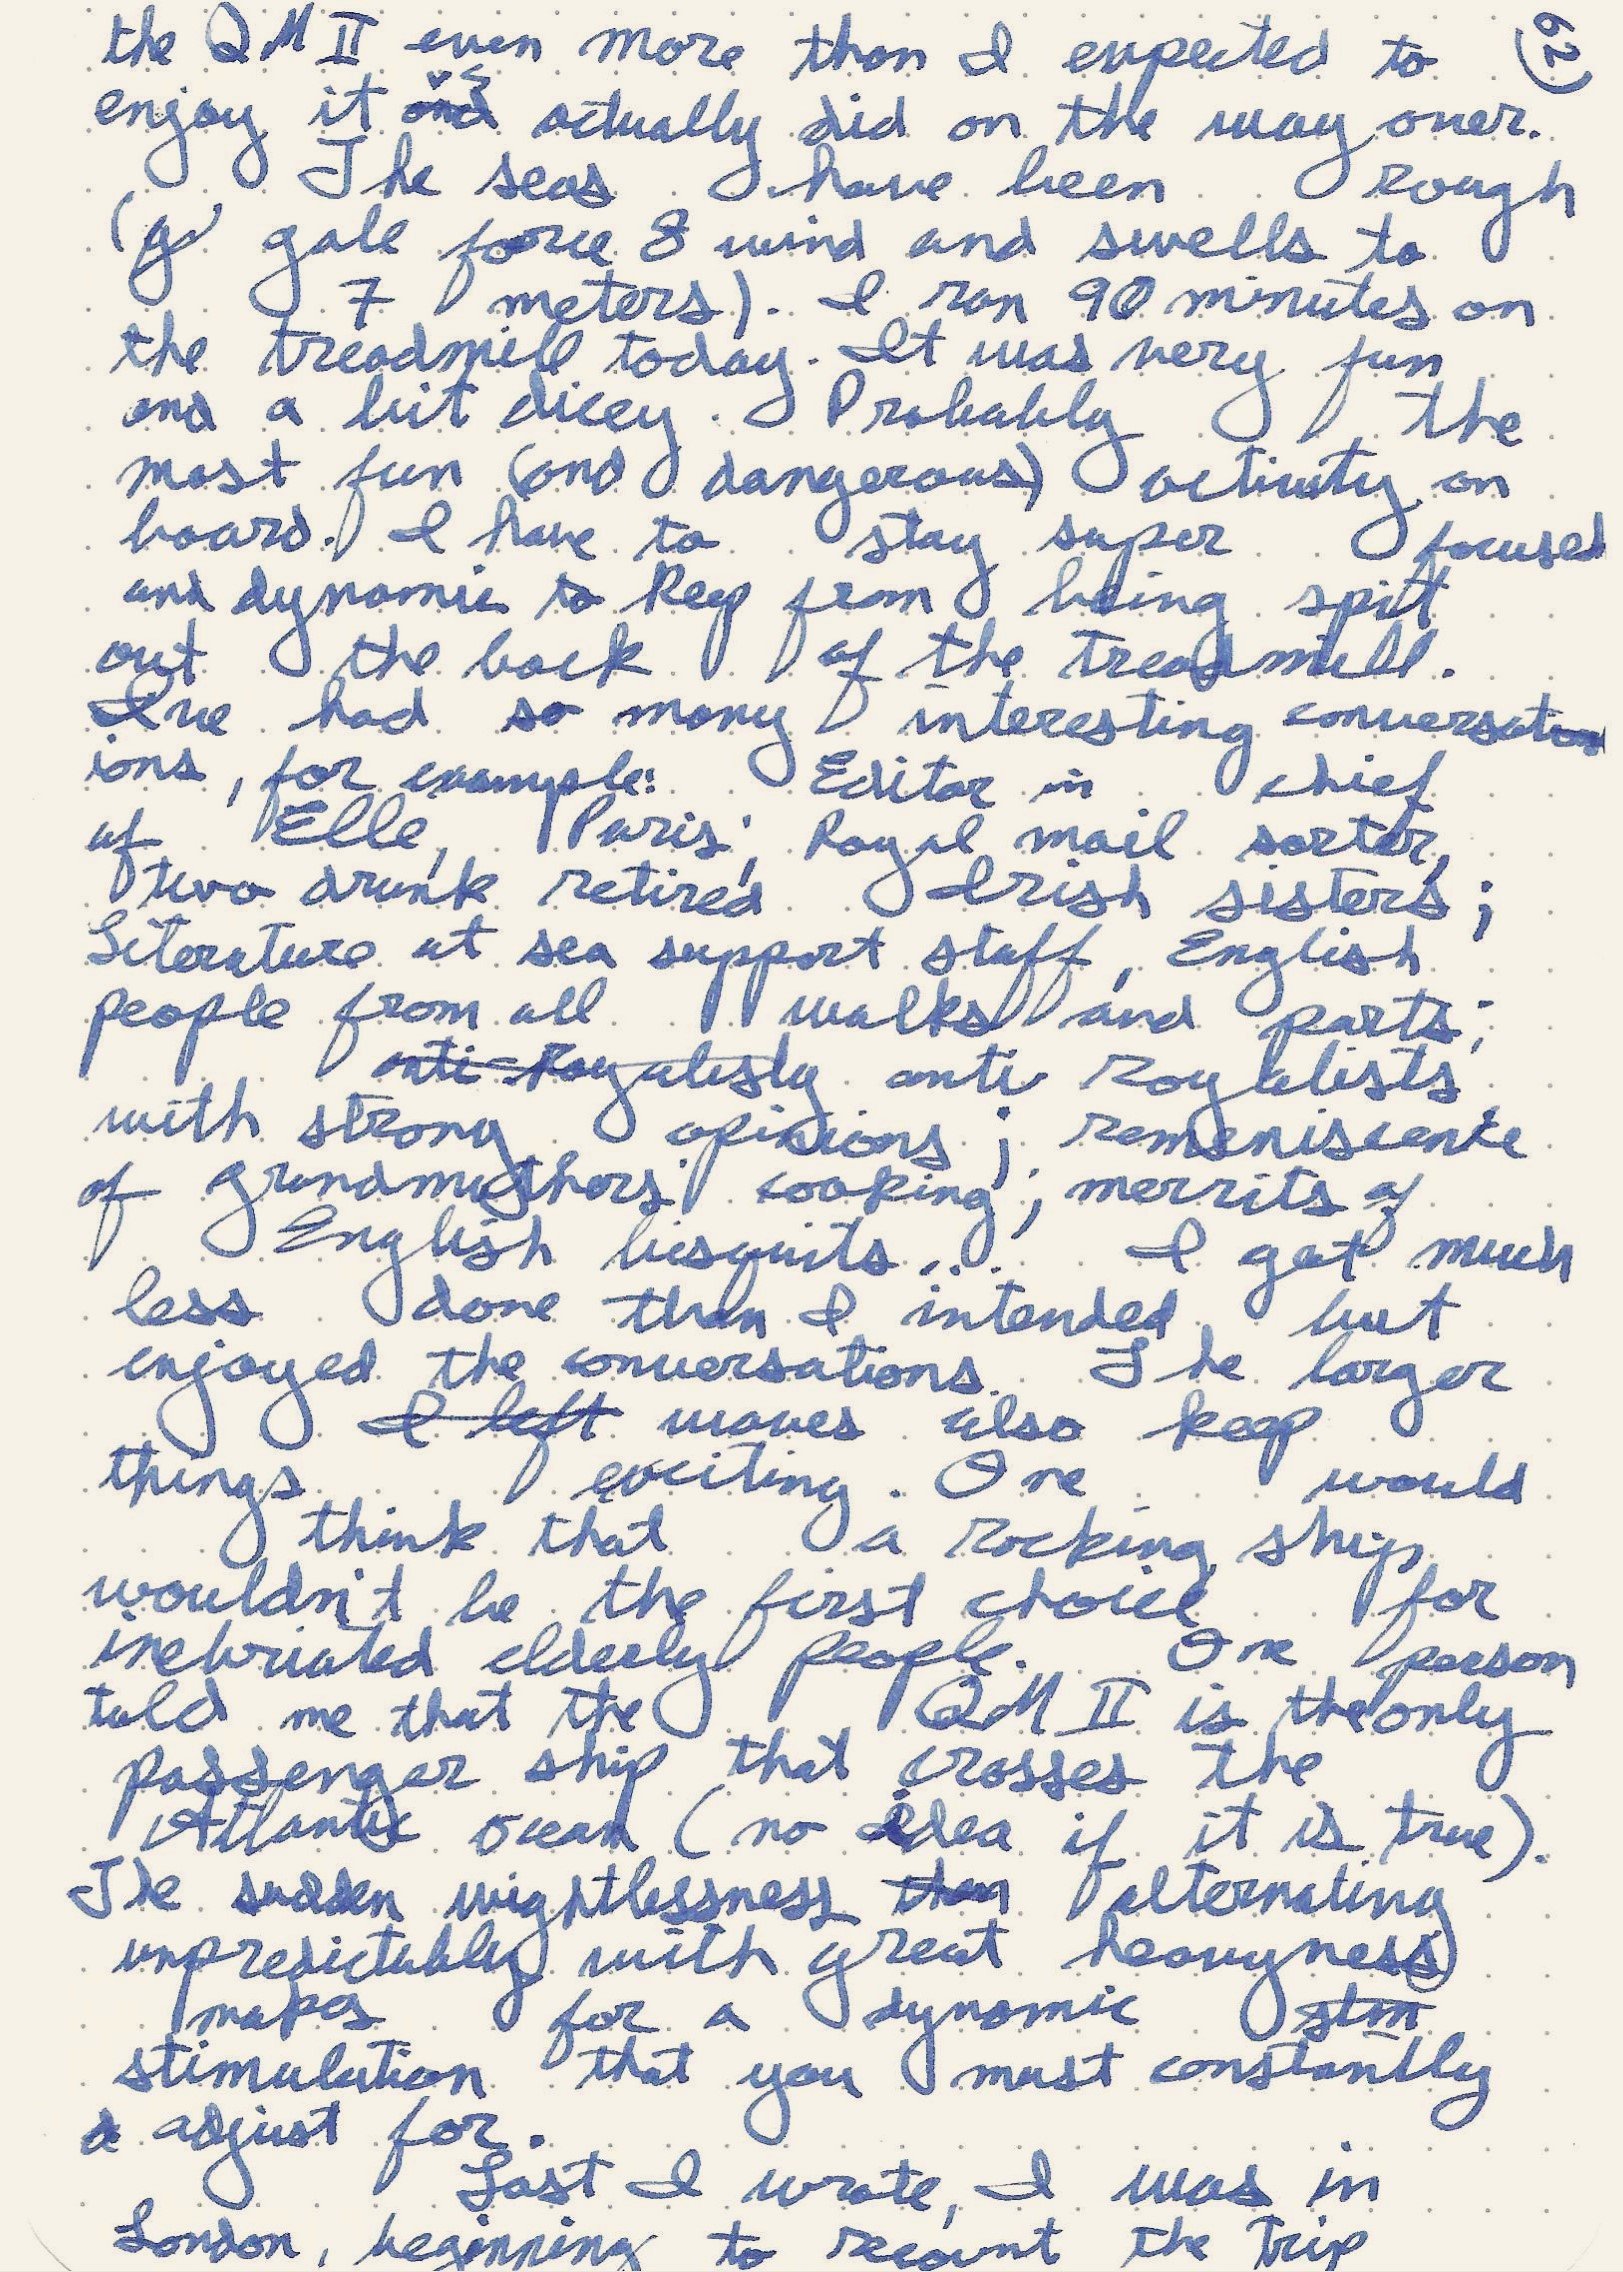 the QM II even more than I expected to (62)
enjoy it and actually did on the way over.
The seas have been rough
(g gale force 8 wind and swells to
7 meters). I ran 90 minutes on
the treadmill today. It was very fun
and a bit dicey. Probably the
most fun (and dangerous) activity on
board. I have to stay super focused
and dynamic to keep from being spit
out the back of the treadmill.
Ive had so many interesting conversation
ions, for example: Editor in chief
of Elle, Paris; Royal mail sorter,
two drunk retired Irish sisters;
Literature at sea support staff, English
people from all walks and parts;
anti-Royalisty anti royalists
with strong opinions; remeniscence
of grandmothers' cooking; merrits of
English bisquits... I get much
less done than I intended, but
enjoyed the conversations. The larger
I left waves also keep
things exciting. One would
think that a rocking ship
wouldn't be the first choice for
inebriated elderly people. One person
told me that the QM II is the only
passenger ship that crosses the
Atlantic ocean (no idea if it is true).
The sudden wightlessness than alternating
unpredictably with great heavyness
makes for a dynamic stm
stimulation that you must constantly
a adjust for.
Last I wrote, I was in
London, beginning to recount the trip